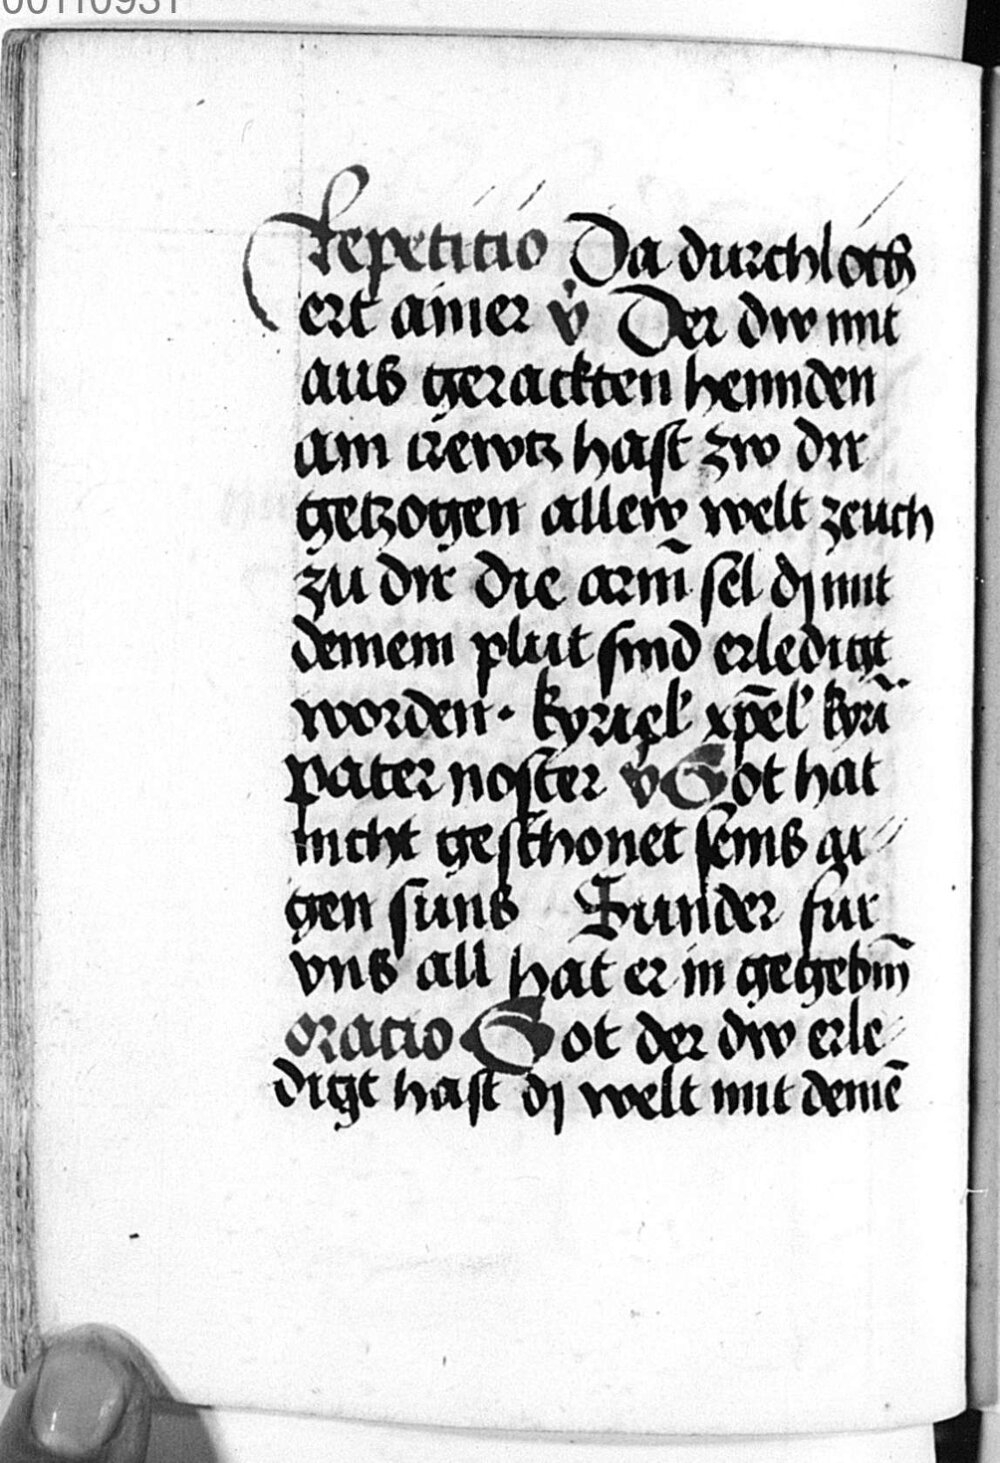 00110931
Repeticio Da durchloch
ert ainer v̇ Der dw mit
aus gerackten hennden
am crewtz hast zw dir
getzogen allew welt zeuch
zu dir die arm̄ sel dj mit
deinem pluit sind erledigt
worden · kyriel' xp̄el' kyri̅
pater noster v̇ Got hat
nicht geschonet seins ai⸗
gen suns Sunder fur
vns all hat er in gegebin̄
oracio Got der dw erle⸗
digt hast dj welt mit deinē